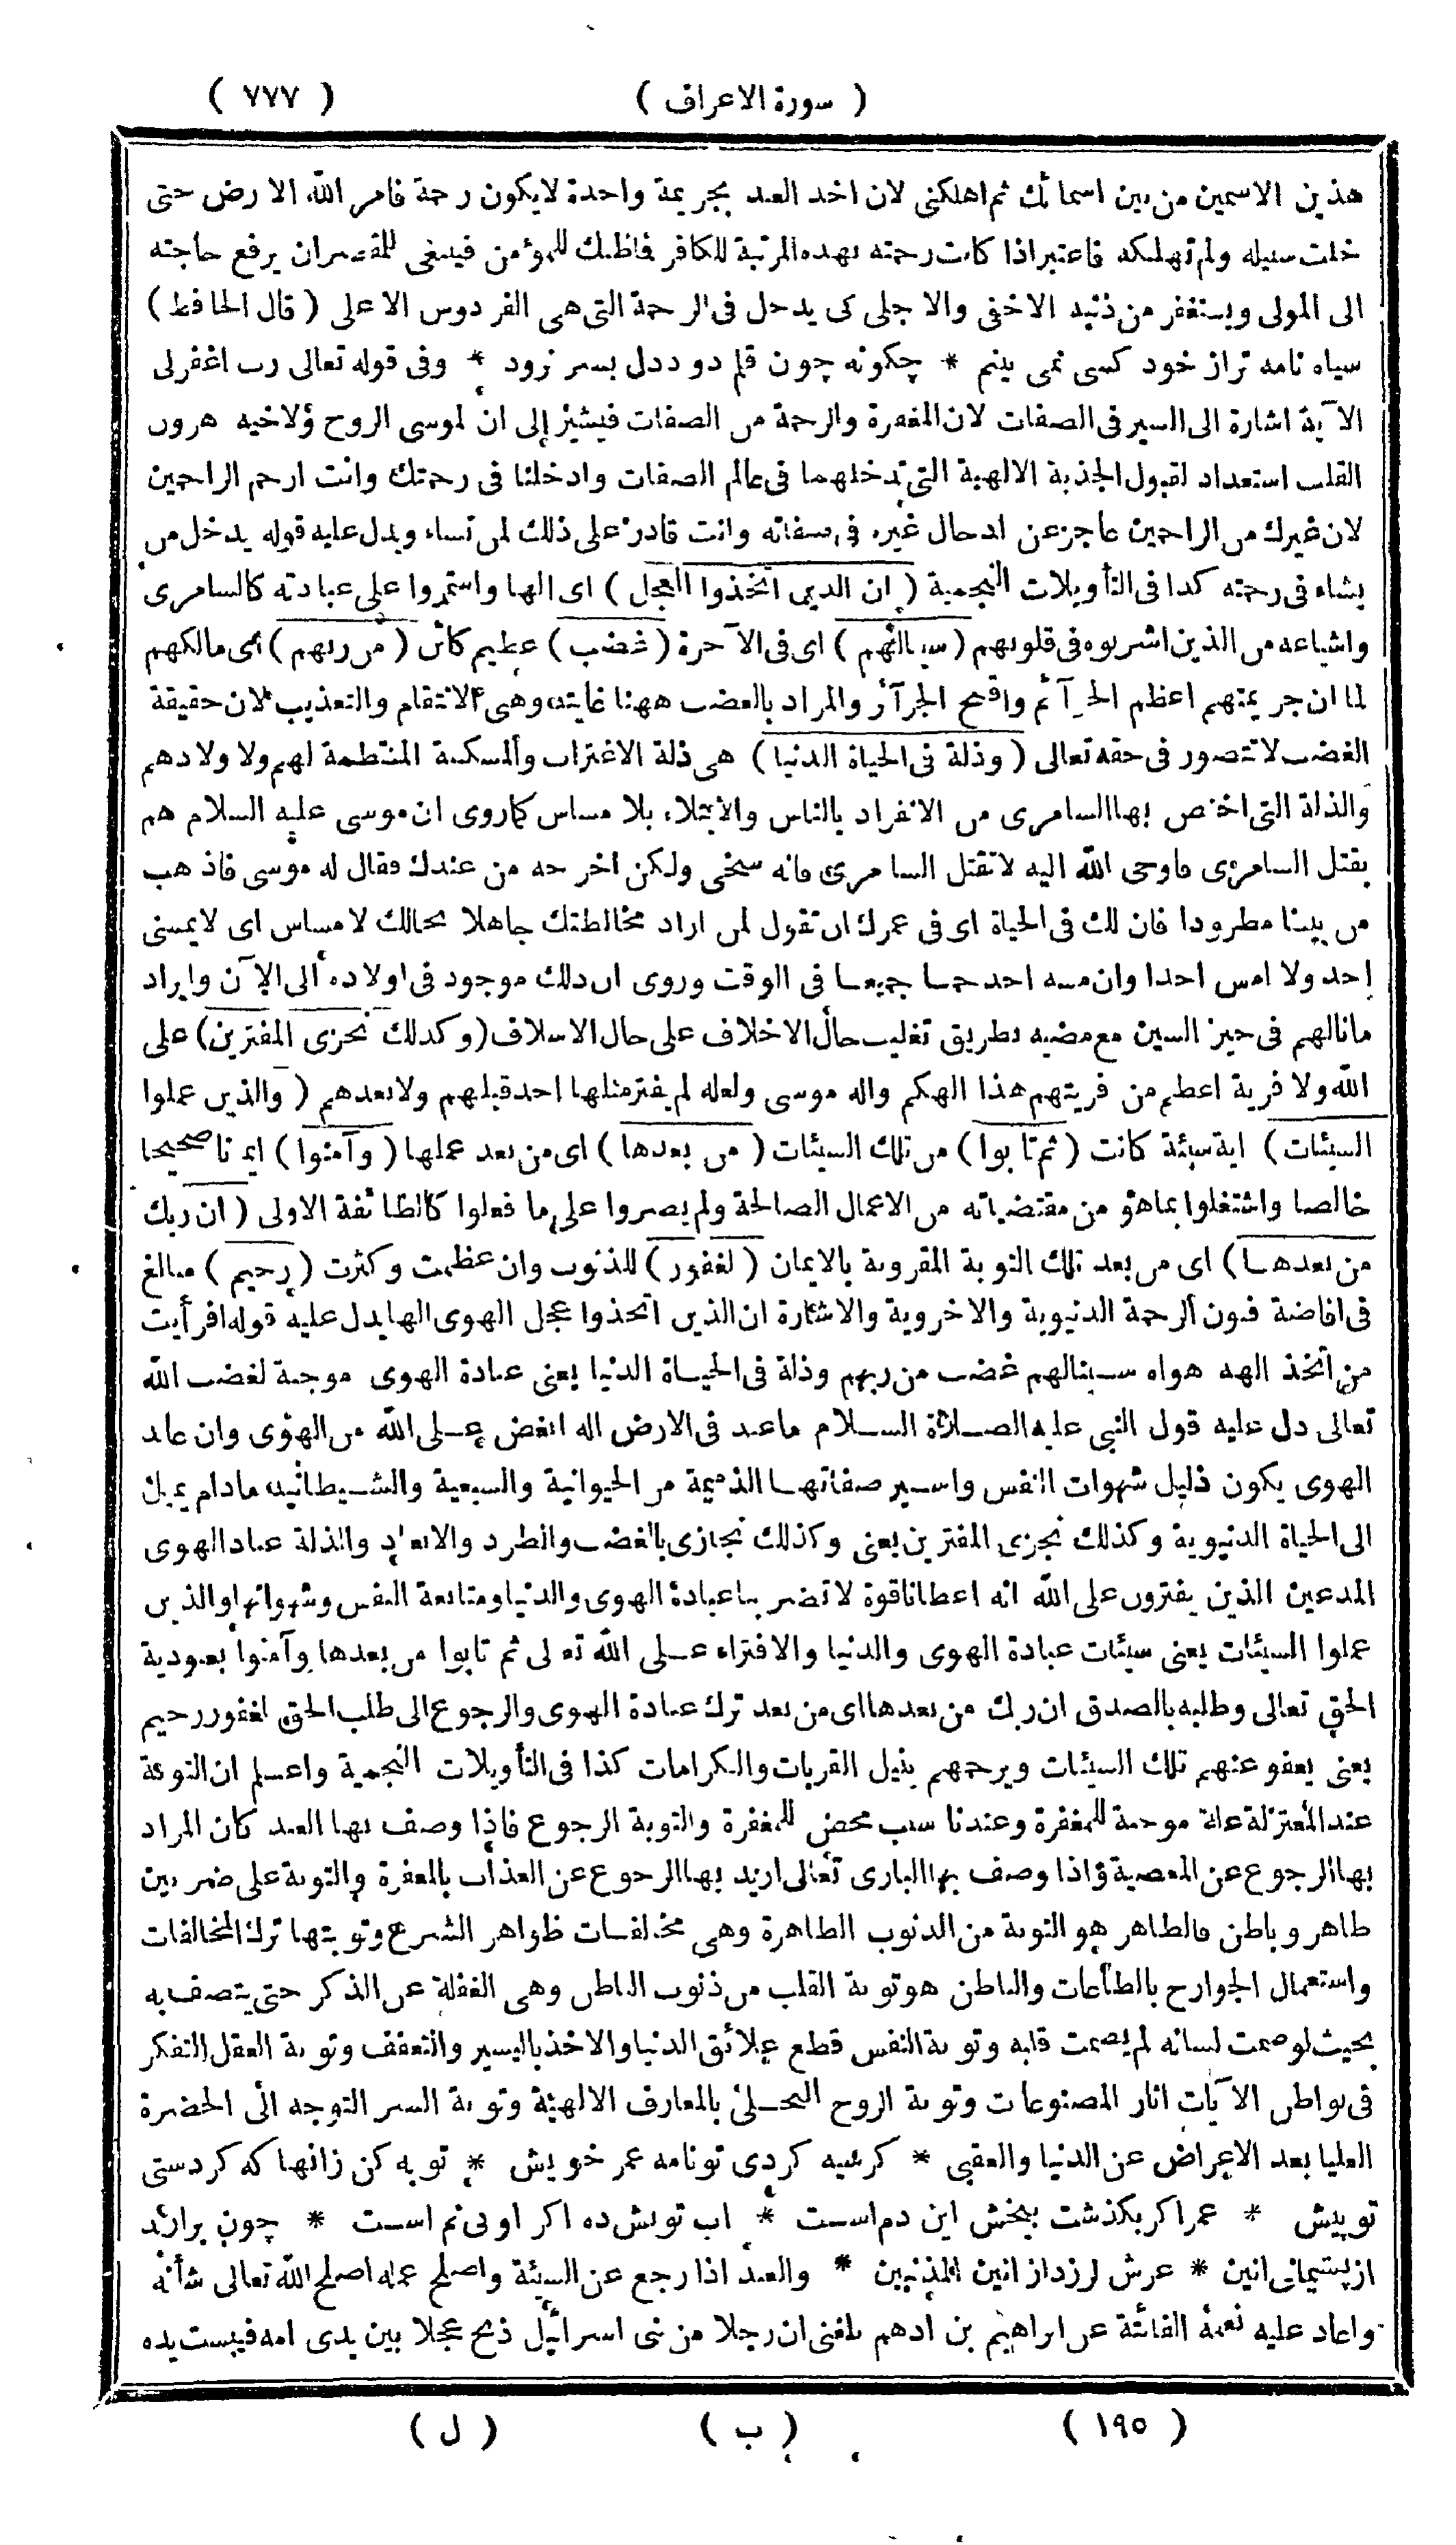 ( سورة الاعراف ) ( ٧٧٧ )
هذين الاسمين من بين اسمائك ثم اهلكنى لان اخذ العبد بجريمة واحدة لايكون رحمة فامر الله الارض حتى
خلت سبيله ولم تهلكه فاعتبر اذا كانت رحمته بهذه المرتبة للكافر فاظنك للمؤمن فينبغى للمقصران يرفع حاجته
الى المولى ويستغفر من ذنبه الاخفى والاجلى كى يدخل فى الرحمة التى هى الفردوس الاعلى ( قال الحافظ )
سياه نامه تراز خود كسى نمى بينم * چكونه چون قلم دود دل بسر نرود * وفى قوله تعالى رب اغفرلى
الآية اشارة الى السير فى الصفات لان المغفرة والرحمة من الصفات فيشير الى ان لموسى الروح ولاخيه هرون
القلب استعداد لقبول الجذبة الالهية التى تدخلهما فى عالم الصفات وادخلنا فى رحمتك وانت ارحم الراحمين
لان غيرك من الراحمين عاجز عن ادخال غيره فى صفاته وانت قادر على ذلك لمن تشاء ويدل عليه قوله يدخل من
يشاء فى رحمته كذا فى التأويلات النجمية ( ان الذين اتخذوا العجل ) اى الها واستمروا على عبادته كالسامرى
واشياعه من الذين اشربوه فى قلوبهم ( سينالهم ) اى فى الآخرة ( غضب ) عظيم كائن ( من ربهم ) اى مالكهم
لما ان جريمتهم اعظم الجرآئم واقبح الجرآئر والمراد بالغضب ههنا غايته وهى الانتقام والتعذيب لان حقيقة
الغضب لا تتصور فى حقه تعالى ( وذلة فى الحياة الدنيا ) هى ذلة الاغتراب والمسكنة المنتظمة لهم ولاولادهم
والذلة التى اختص بها السامرى من الانفراد بالناس والابتلاء بلا مساس كما روى ان موسى عليه السلام هم
بقتل السامرى فاوحى الله اليه لاتقتل السامرى فانه سخى ولكن اخرجه من عندك فقال له موسى فاذهب
من بيننا مطرودا فان لك فى الحياة اى فى عمرك ان تقول لمن اراد مخالطتك جاهلا بحالك لامساس اى لايمسنى
احد ولا امس احدا وان مسه احد حما جميعا فى الوقت وروى ان ذلك موجود فى اولاده الى الآن وايراد
مانالهم فى حيز السين مع مضيه بطريق تغليب حال الاخلاف على حال الاسلاف ( وكذلك نجزى المفترين ) على
الله ولا فرية اعظم من فريتهم هذا الهكم واله موسى ولعله لم يفتر مثلها احد قبلهم ولا بعدهم ( والذين عملوا
السيئات ) اية سيئة كانت ( ثم تابوا ) من تلك السيئات ( من بعدها ) اى من بعد عملها ( وآمنوا ) ايمانا صحيحا
خالصا واشتغلوا بما هو من مقتضياته من الاعمال الصالحة ولم يصروا على ما فعلوا كالطائفة الاولى ( ان ربك
من بعدها ) اى من بعد تلك التوبة المقرونة بالايمان ( لغفور ) للذنوب وان عظمت وكثرت ( رحيم ) مبالغ
فى افاضة فنون الرحمة الدنيوية والاخروية والاشارة ان الذين اتخذوا عجل الهوى الها يدل عليه قوله افرأيت
من اتخذ الهه هواه سينالهم غضب من ربهم وذلة فى الحياة الدنيا يعنى عبادة الهوى موجبة لغضب الله
تعالى دل عليه قول النبى عليه الصلاة السلام ماعبد فى الارض اله ابغض على الله من الهوى وان عابد
الهوى يكون ذليل شهوات النفس واسير صفاتها الذميمة من الحيوانية والسبعية والشيطانيه مادام يميل
الى الحياة الدنيوية وكذلك نجزى المفترين يعنى وكذلك نجازى بالغضب والطرد والابعاد والذلة عباد الهوى
المدعين الذين يفترون على الله انه اعطانا قوة لا تضر بنا عبادة الهوى والدنيا ومتابعة النفس وشهواتها والذين
عملوا السيئات يعنى سيئات عبادة الهوى والدنيا والافتراء على الله تعالى ثم تابوا من بعدها وآمنوا بعبودية
الحق تعالى وطلبه بالصدق ان ربك من بعدها اى من بعد ترك عبادة الهوى والرجوع الى طلب الحق لغفور رحيم
يعنى يعفو عنهم تلك السيئات ويرحمهم بنيل القربات والكرامات كذا فى التأويلات النجمية واعلم ان التوبة
عند المعتزلة علة موجبة للمغفرة وعندنا سبب محض للمغفرة والتوبة الرجوع فاذا وصف بها العبد كان المراد
بها الرجوع عن المعصية واذا وصف بها البارى تعالى اريد بها الرجوع عن العذاب بالمغفرة والتوبة على ضربين
ظاهر وباطن فالظاهر هو التوبة من الذنوب الظاهرة وهى مخالفات ظواهر الشرع وتوبتها ترك المخالفات
واستعمال الجوارح بالطاعات والباطن هو توبة القلب من ذنوب الباطن وهى الغفلة عن الذكر حتى يتصف به
بحيث لو صمت لسانه لم يصمت قلبه وتوبة النفس قطع علائق الدنيا والاخذ باليسير والتعفف وتوبة العقل التفكر
فى بواطن الآيات اثار المصنوعات وتوبة الروح التحلى بالمعارف الالهية وتوبة السر التوجه الى الحضرة
العليا بعد الاعراض عن الدنيا والعقبى * كرسيه كردى تو نامه عمر خويش * توبه كن زانها كه كردستى
تو پيش * عمر اكر بكذشت بيخش اين دم است * اب توبش ده اكر او بى نم است * چون برارند
از پشيمانى انين * عرش لرزد از انين المذنبين * والعبد اذا رجع عن السيئة واصلح عمله اصلح الله تعالى شأنه
واعاد عليه نعمة الفائتة عن ابراهيم بن ادهم بلغنى ان رجلا من بنى اسرائيل ذبح عجلا بين يدى امه فيبست يده
( ١٩٥ ) ( ب ) ( ل )